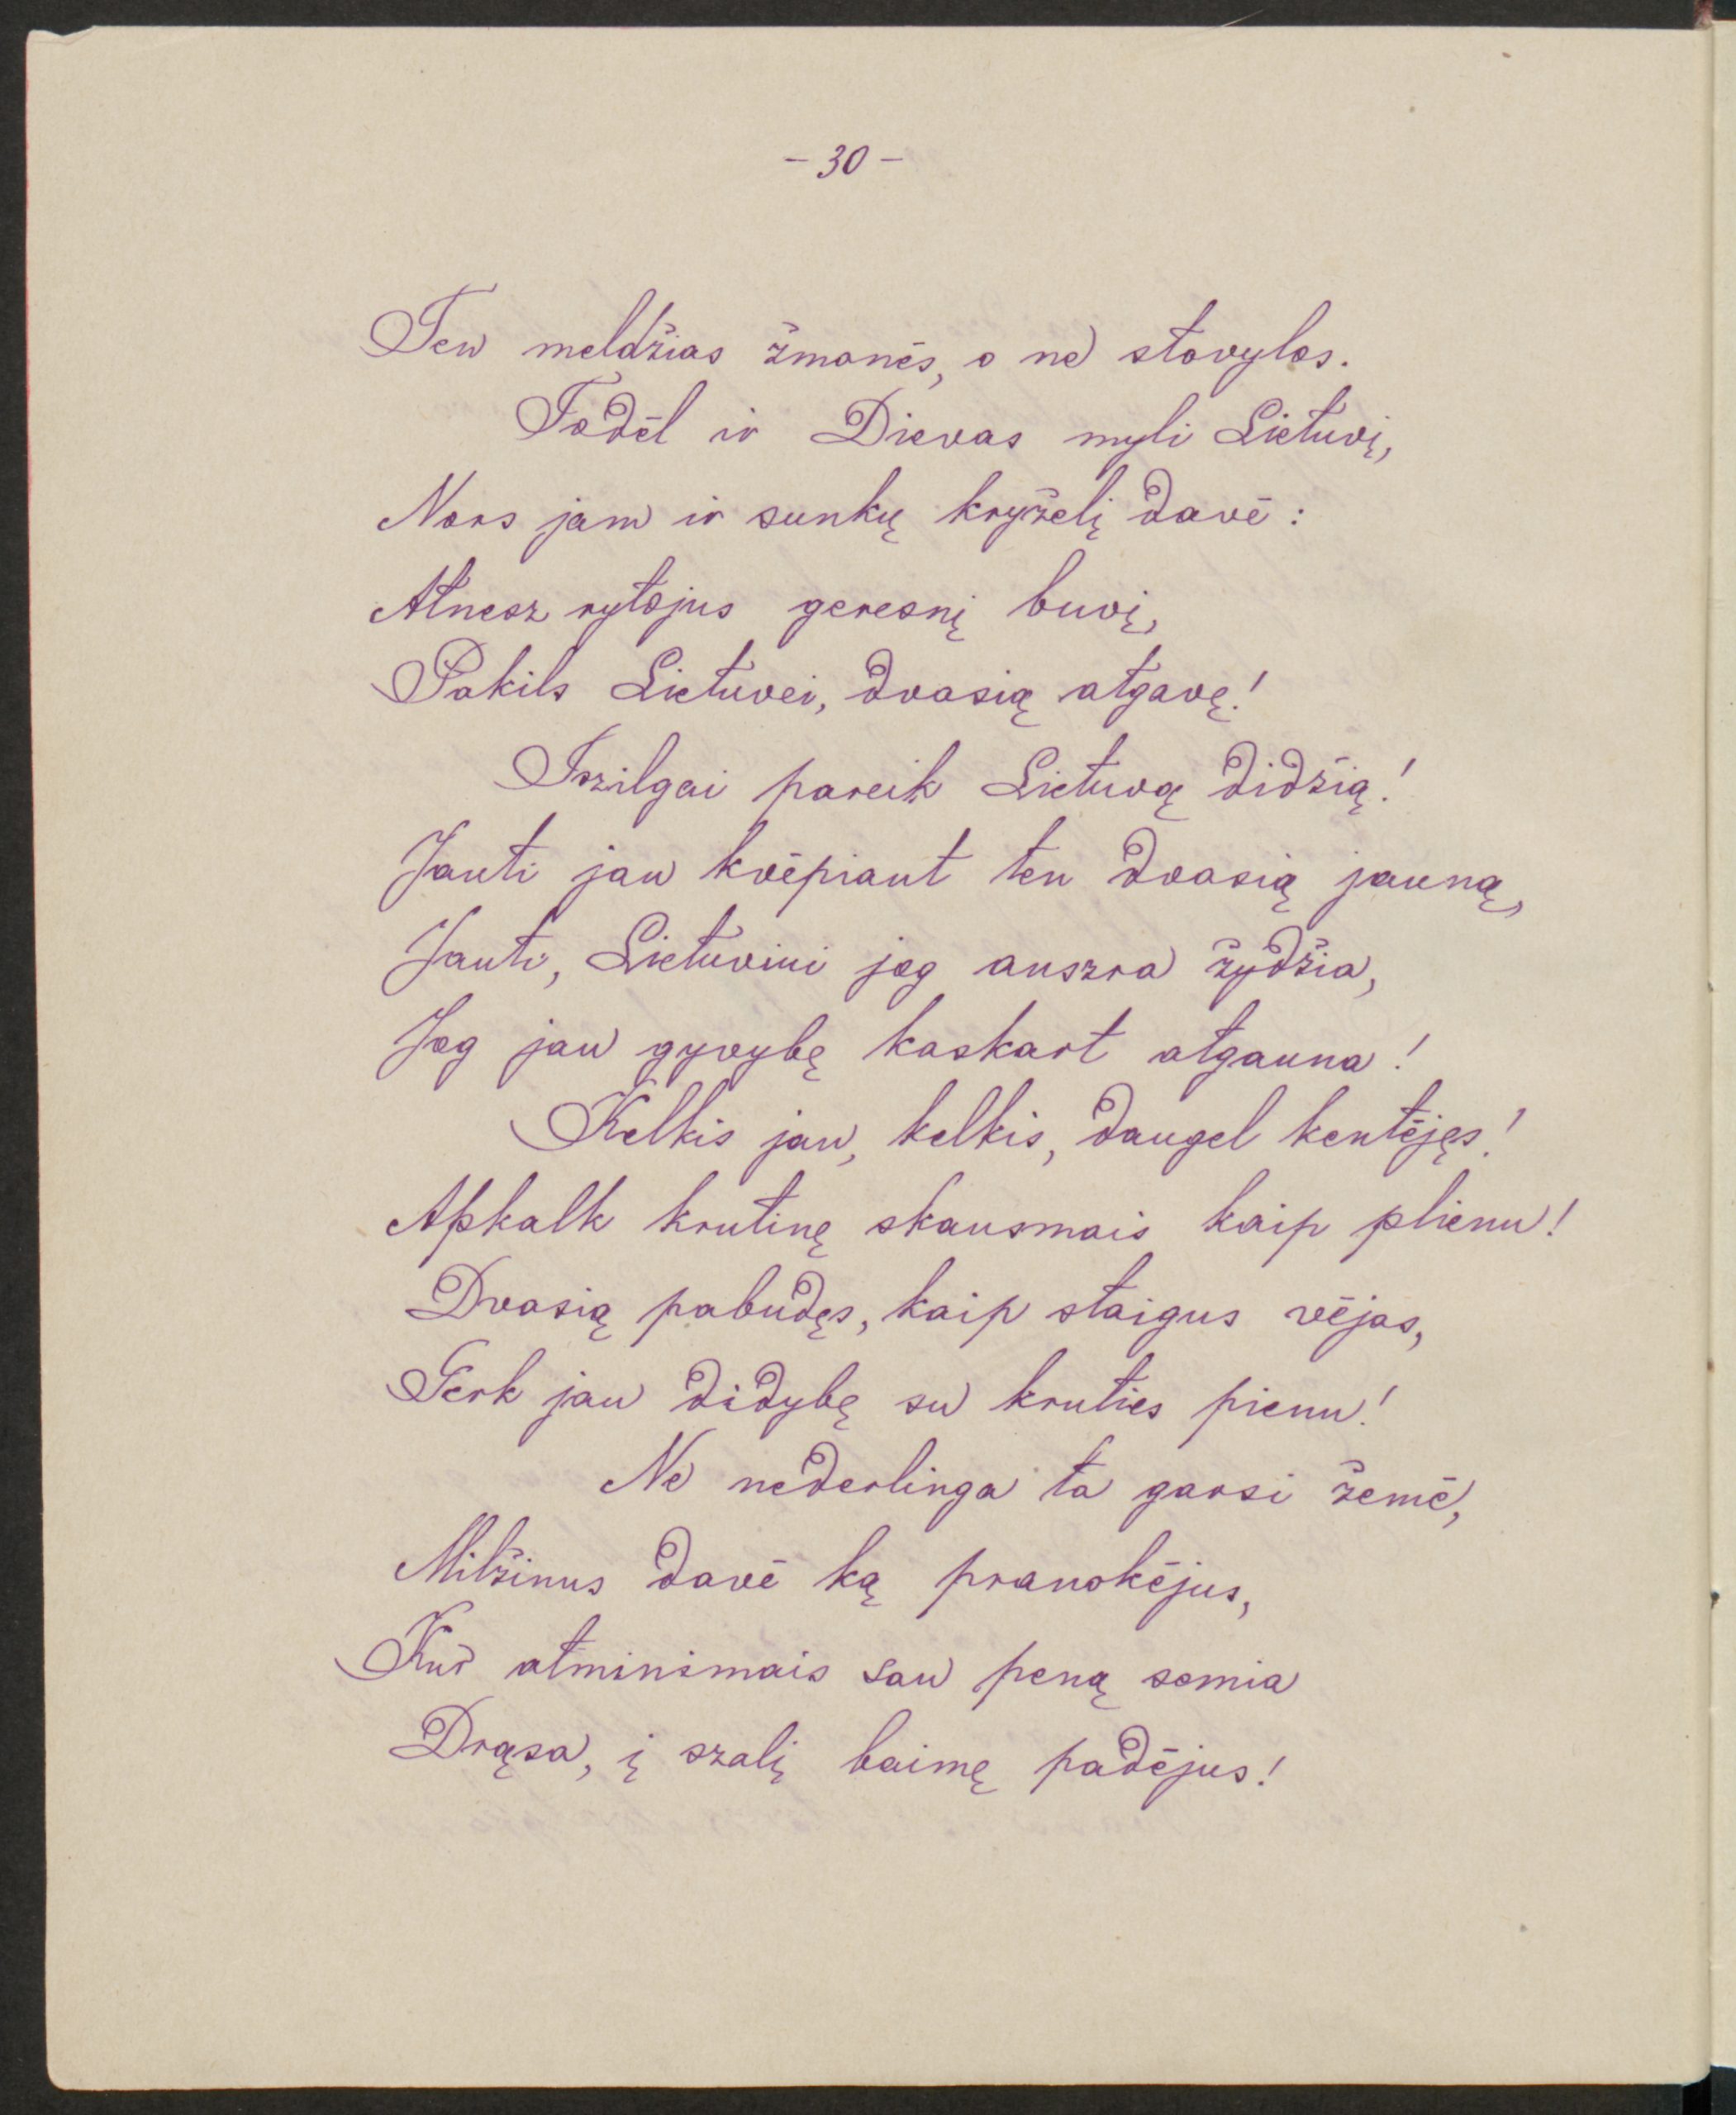 - 30 -
Ten meldžias žmonės, o ne stovylos.
Todėl ir Dievas myli Lietuvį,
Nors jam ir sunkų kryželį davė:
Atnesz rytojus geresnį buvį,
Pakils Lietuvei, dvasią atgavę!
Iszilgai pareik Lietuvą didžią!
Jauti jau kvėpiant ten dvasią jauną,
Jauti, Lietuvini jog auszra žydžia,
Jog jau gyvybę kaskart atgauna!
Kelkis jau, kelkis, daugel kentėjęs!
Apkalk krutinę skausmais kaip plienu!
Dvasią pabudęs, kaip staigus vėjas,
Gerk jau didybę su kruties pienu!
Ne nederlinga ta garsi žemė,
Milžinus davė ką pranokėjus,
Kur atminimais sau peną semia
Drąsa, į szalį baimę padėjus!